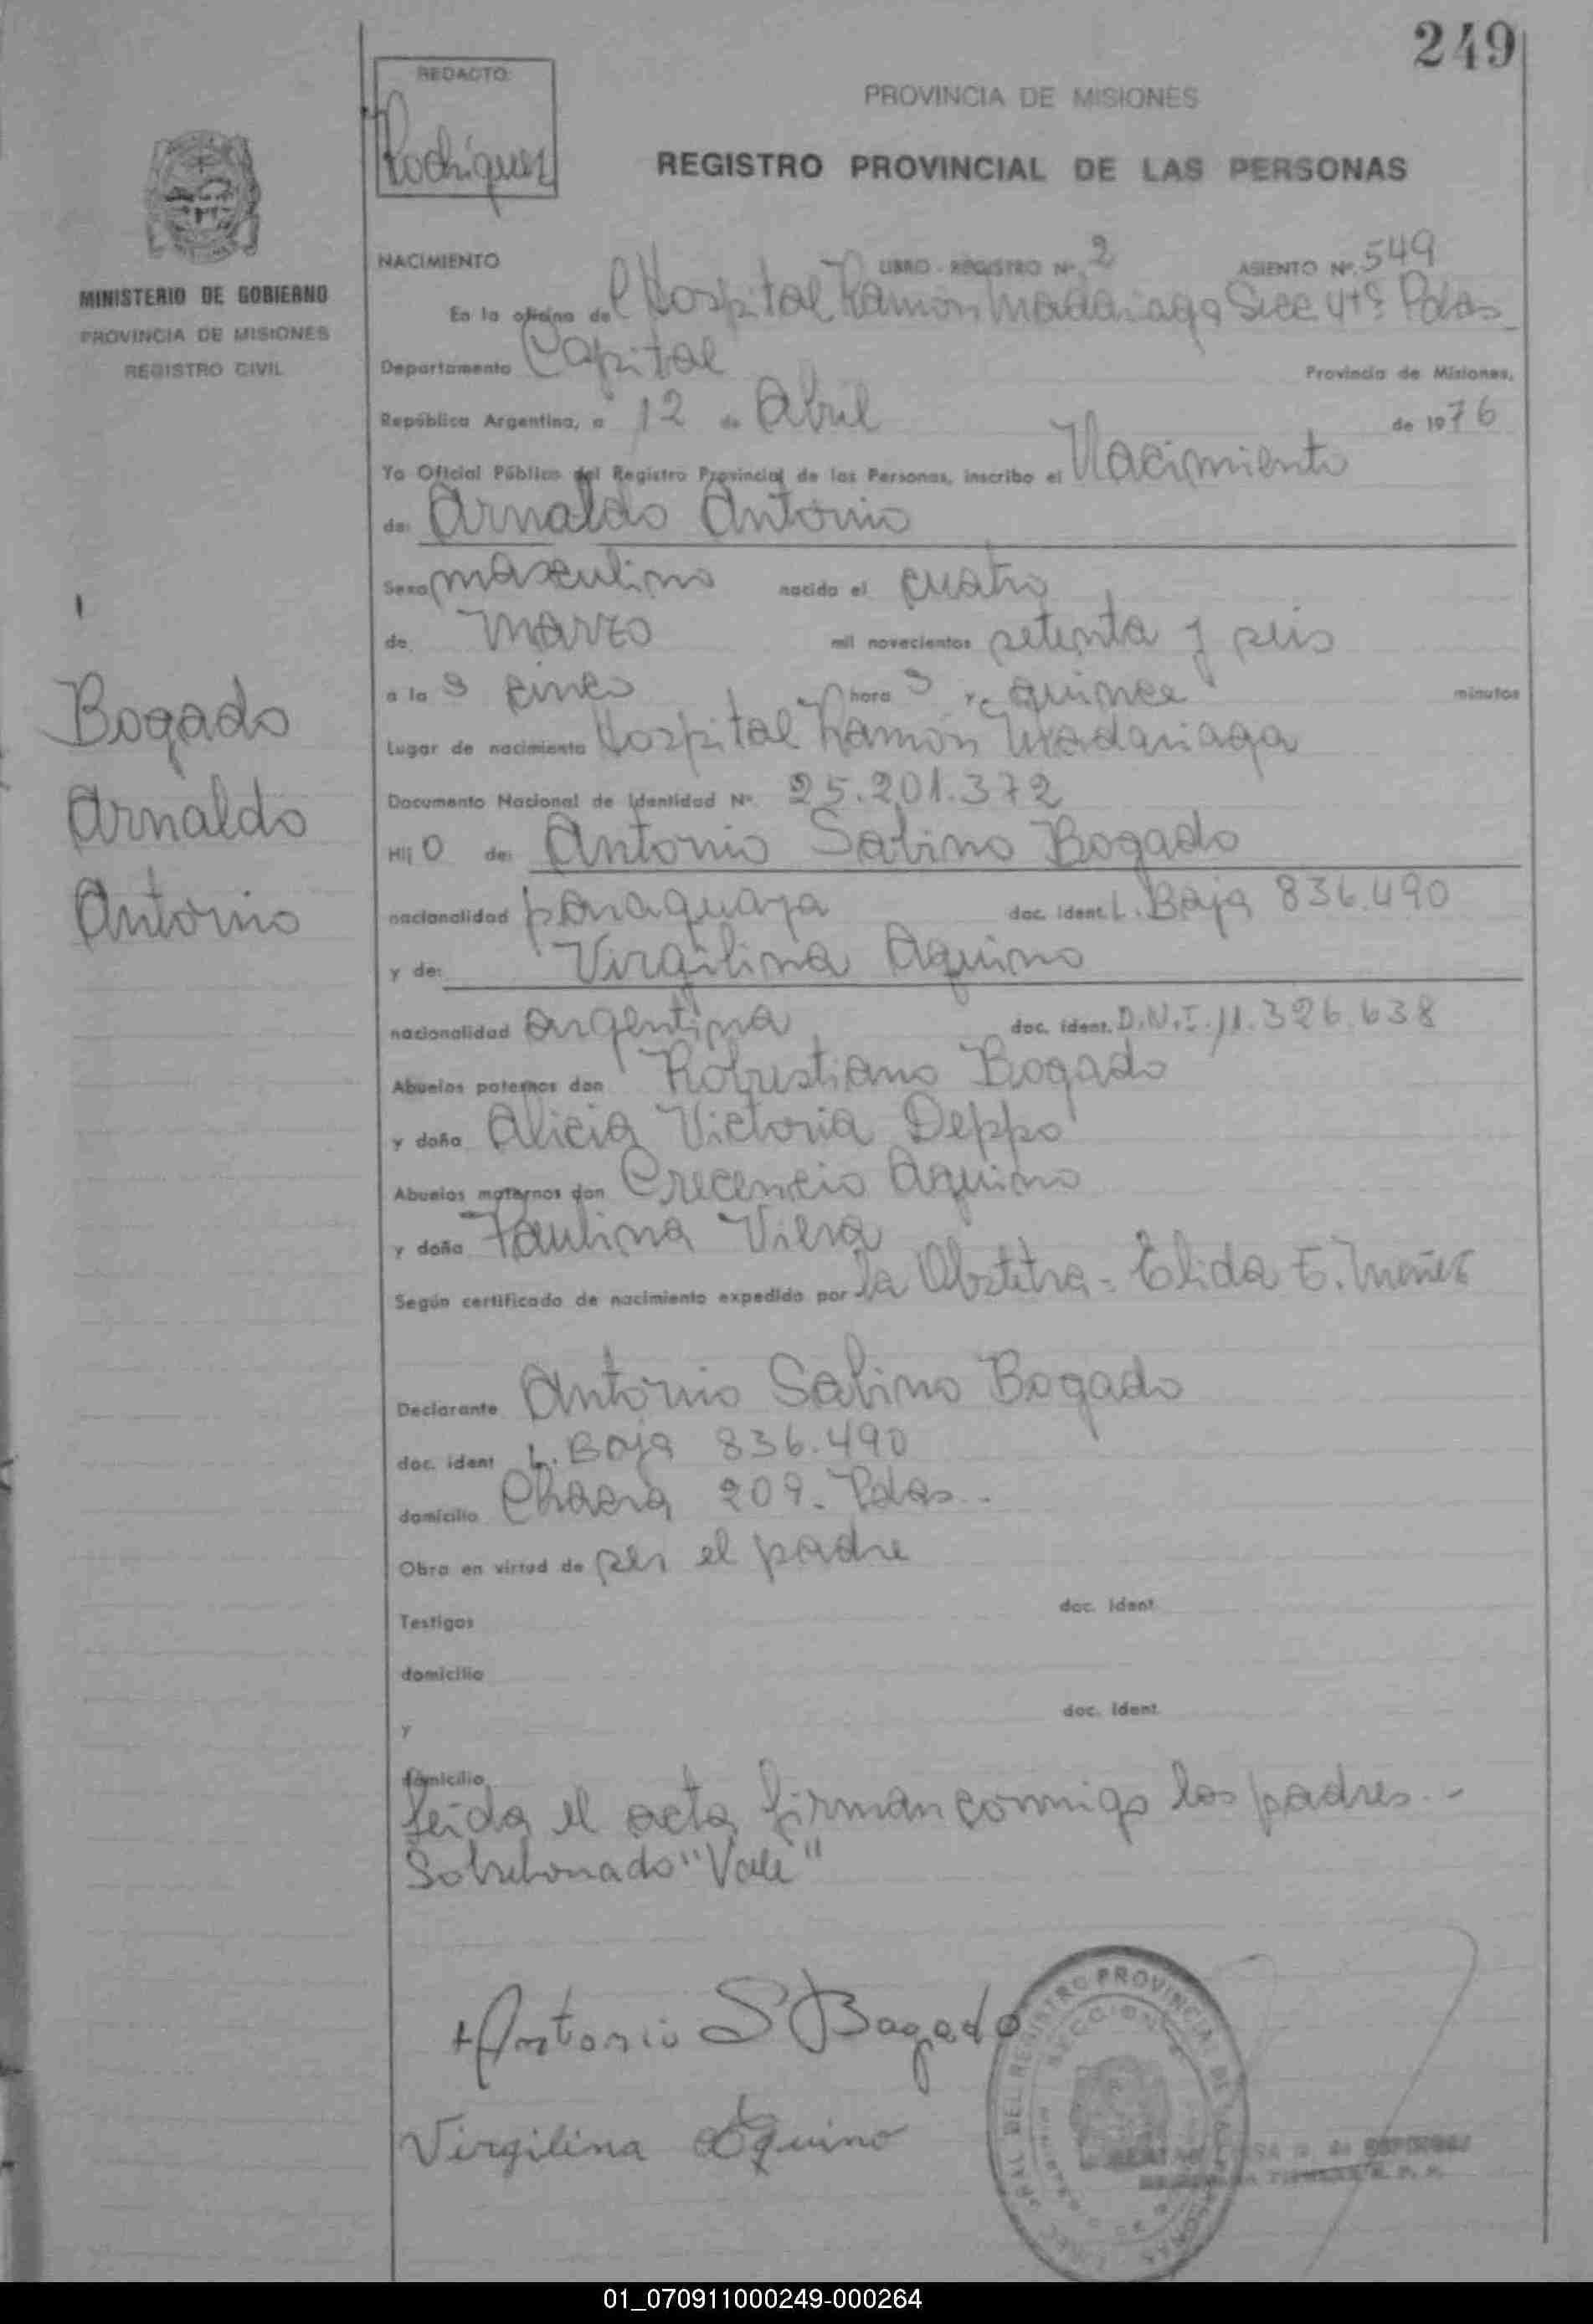 249
REDACTO
Rodriguez
PROVINCIA DE MISIONES
REGISTRO PROVINCIAL DE LAS PERSONAS
MINISTERIO DE GOBIERNO
PROVINCIA DE MISIONES
REGISTRO CIVIL
NACIMIENTO LIBRO - REGISTRO Nº 2 ASIENTO Nº 549
En la oficina del Hospital Ramón Madariaga Secc 4ta Pdas
Departamento Capital Provincia de Misiones,
República Argentina, a 12 de Abril de 1976
Yo Oficial Público del Registro Provincial de las Personas, inscribo el Nacimiento
de: Arnaldo Antonio
Sexo masculino nacido el cuatro
de marzo mil novecientos setenta y seis
a la s cinco hora s y quince minutos
Lugar de nacimiento Hospital Ramón Madariaga
Documento Nacional de Identidad Nº 25.201.372
Hij o de: Antonio Sabino Bogado
nacionalidad paraguaya doc. ident. L. Baja 836.490
y de: Virgilina Aquino
nacionalidad argentina doc. ident. D.N.I. 11.326.638
Abuelos paternos don Robustiano Bogado
y doña Alicia Victoria Deppo
Abuelos maternos don Crecencio Aquino
y doña Paulina Viera
Según certificado de nacimiento expedido por la Obstetra - Elida E.
Declarante Antonio Sabino Bogado
doc. ident L. Baja 836.490
domicilio Chacra 209. Pdas.
Obra en virtud de ser el padre
Testigos doc. ident
domicilio
y doc. ident.
domicilio
Leida el acta firman conmigo los padres.-
Sobreborrado "Vale"
Bogado
Arnaldo
Antonio
Antonio S Bogado
Virgilina Aquino
REGISTRO PROVINCIAL DE LAS PERSONAS
01_070911000249-000264